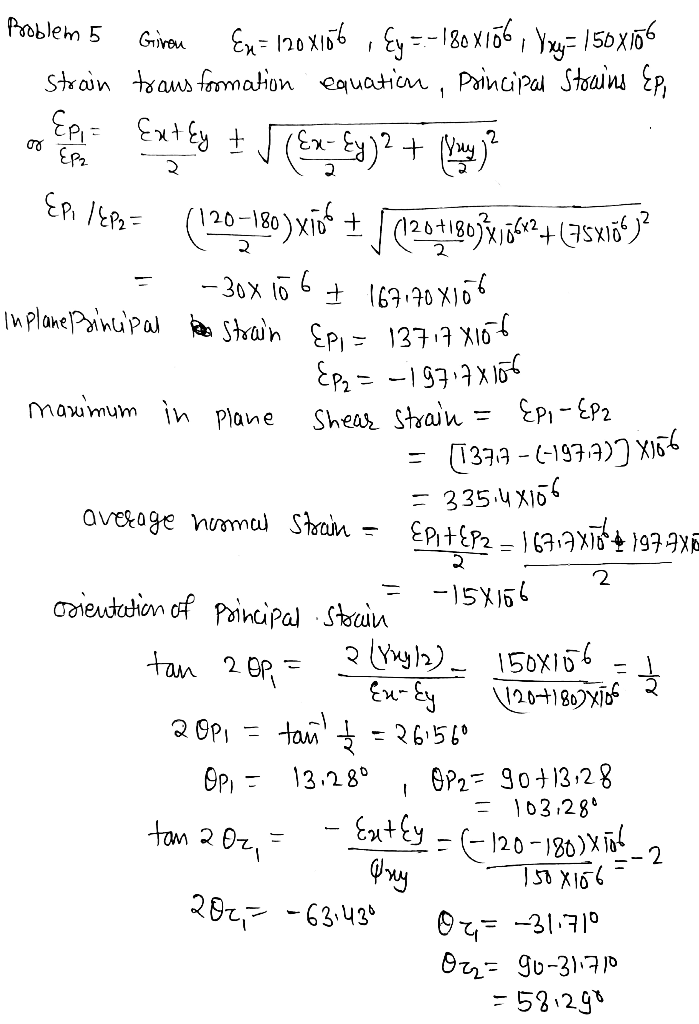 Problem 5 Given Ex = 120X10^-6 , Ey = -180X10^-6 , γxy = 150X10^-6
Strain transformation equation, Principal Strains Ep1
or Ep1/Ep2 = (Ex+Ey)/2 ± √((Ex-Ey)/2)^2 + (γxy/2)^2
Ep1/Ep2 = (120-180)/2 X10^-6 ± √((120+180)/2)^2 X10^-6x2 + (75X10^-6)^2
= -30X10^-6 ± 167.70X10^-6
Inplane Principal Strain Ep1 = 137.7X10^-6
Ep2 = -197.7X10^-6
maximum in plane Shear Strain = Ep1-Ep2
= [137.7-(-197.7)]X10^-6
= 335.4X10^-6
average normal Strain = (Ep1+Ep2)/2 = (167.7X10^-6 ± 197.7X10)/2
= -15X10^-6
orientation of principal strain
tan 2θp1 = 2(γxy/2)/(Ex-Ey) = 150X10^-6/(120+180)X10^-6 = 1/2
2θp1 = tan^-1 1/2 = 26.56°
θp1 = 13.28° , θp2 = 90+13.28
= 103.28°
tan 2θτ1 = -(Ex+Ey)/φxy = (-120-180)X10^-6/150X10^-6 = -2
2θτ1 = -63.43° θτ1 = -31.71°
θτ2 = 90-31.71°
= 58.29°